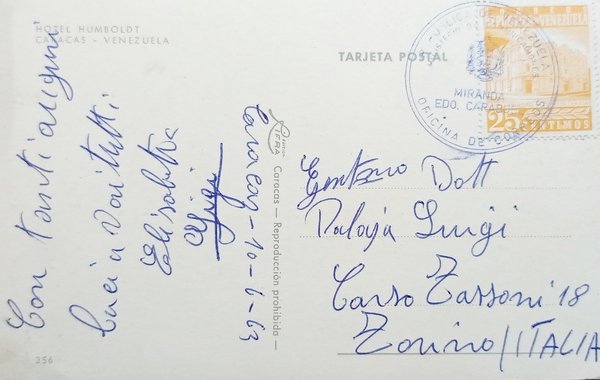 HOTEL HUMBOLDT
CARACAS - VENEZUELA
TARJETA POSTAL
CORREOS DE VENEZUELA
25 CENTIMOS
MIRANDA
EDO. CARABOBO
OFICINA DE CORREOS
Con tanti auguri
Baci a voi tutti
Elisabetta
Gigi
Caracas - 10-6-63
Caracas — Reproducción prohibida —
Dott
Luigi
Corso Tassoni 18
Torino / ITALIA
356